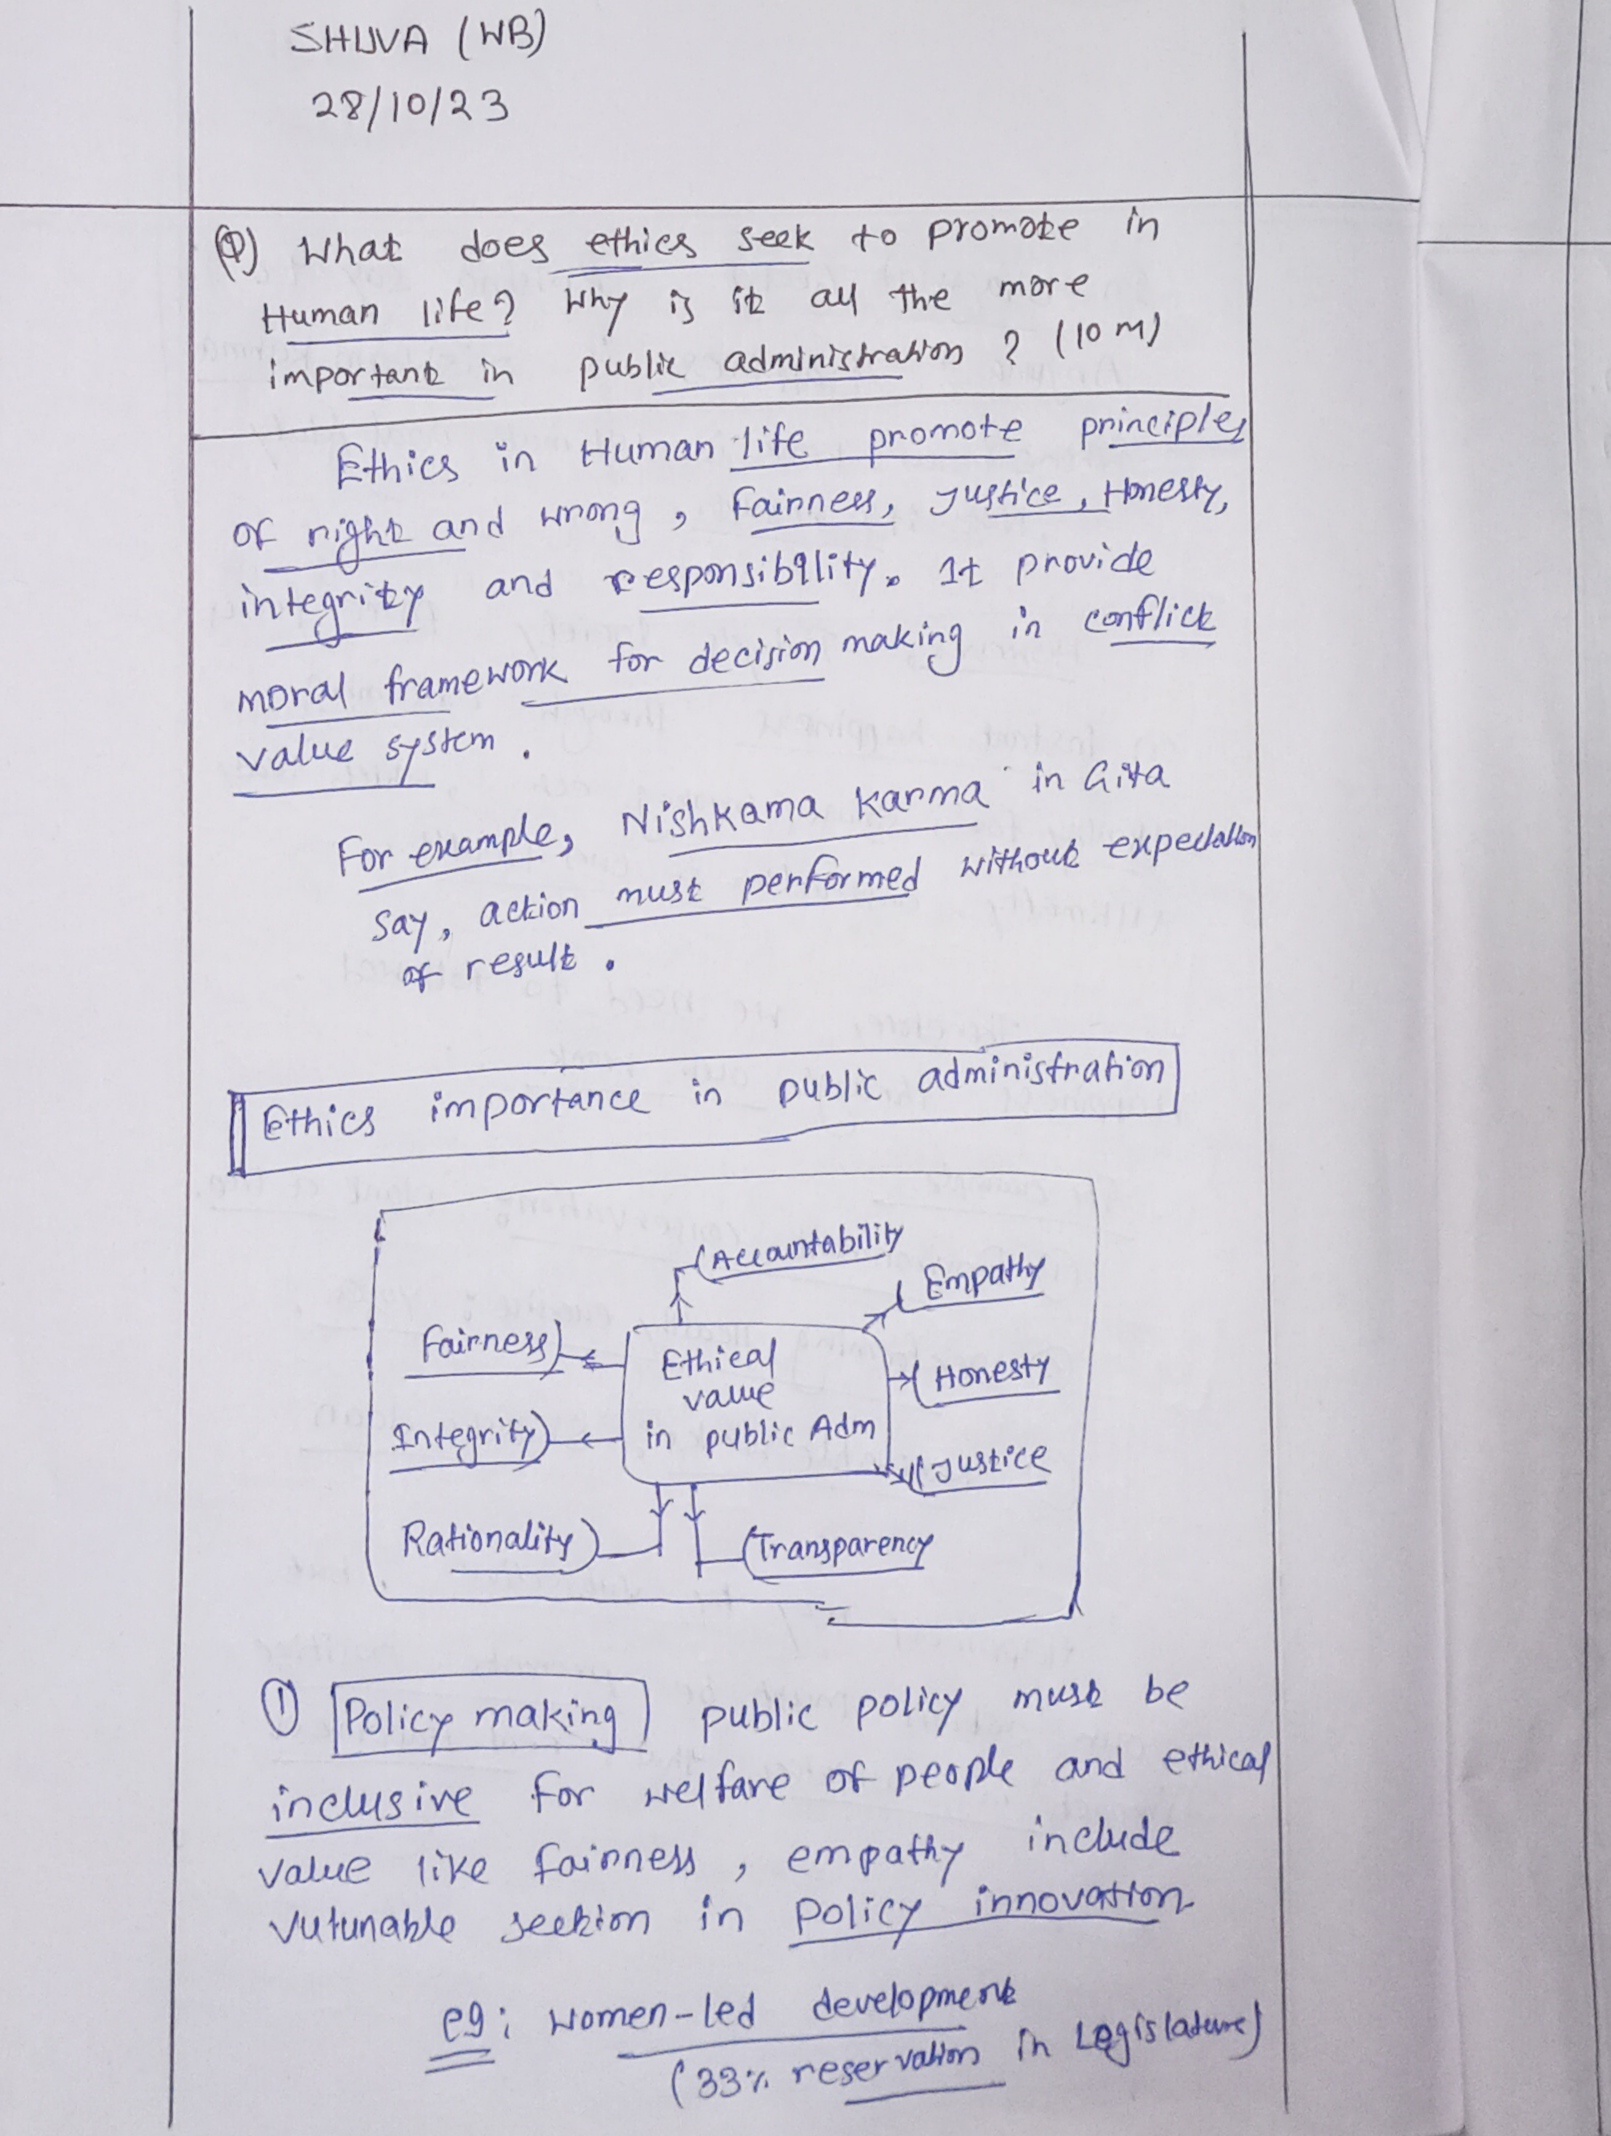 SHUVA (WB)
28/10/23
Q) What does ethics seek to promote in
Human life? Why is it all the more
important in public administration? (10 M)
Ethics in Human life promote principles
of right and wrong, Fairness, Justice, Honesty,
integrity and responsibility. It provide
moral framework for decision making in conflict
value system.
For example, Nishkama Karma in Gita
say, action must performed without expectation
of result.
Ethics importance in public administration
Accountability
Empathy
Fairness
Ethical
value
in public Adm
Honesty
Integrity
Justice
Rationality
Transparency
① Policy making public policy must be
inclusive for welfare of people and ethical
value like fairness, empathy include
vulunable section in policy innovation
eg: women-led development
(33% reservation in Legislature)